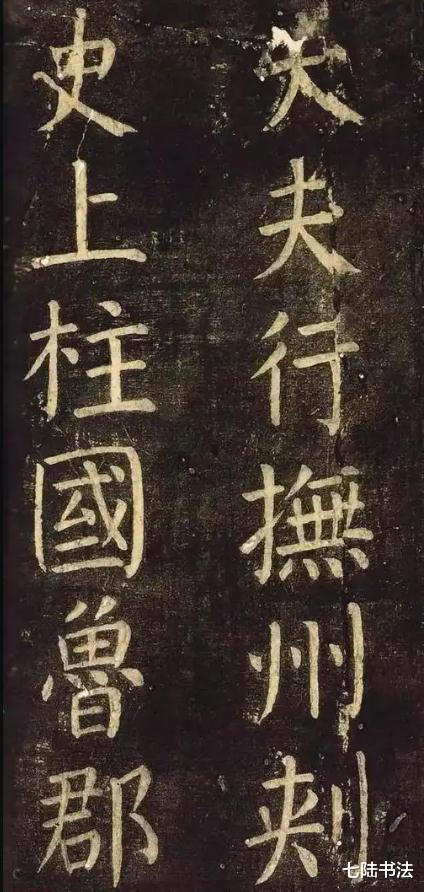 大夫行撫州刾
史上柱國魯郡
七陆书法